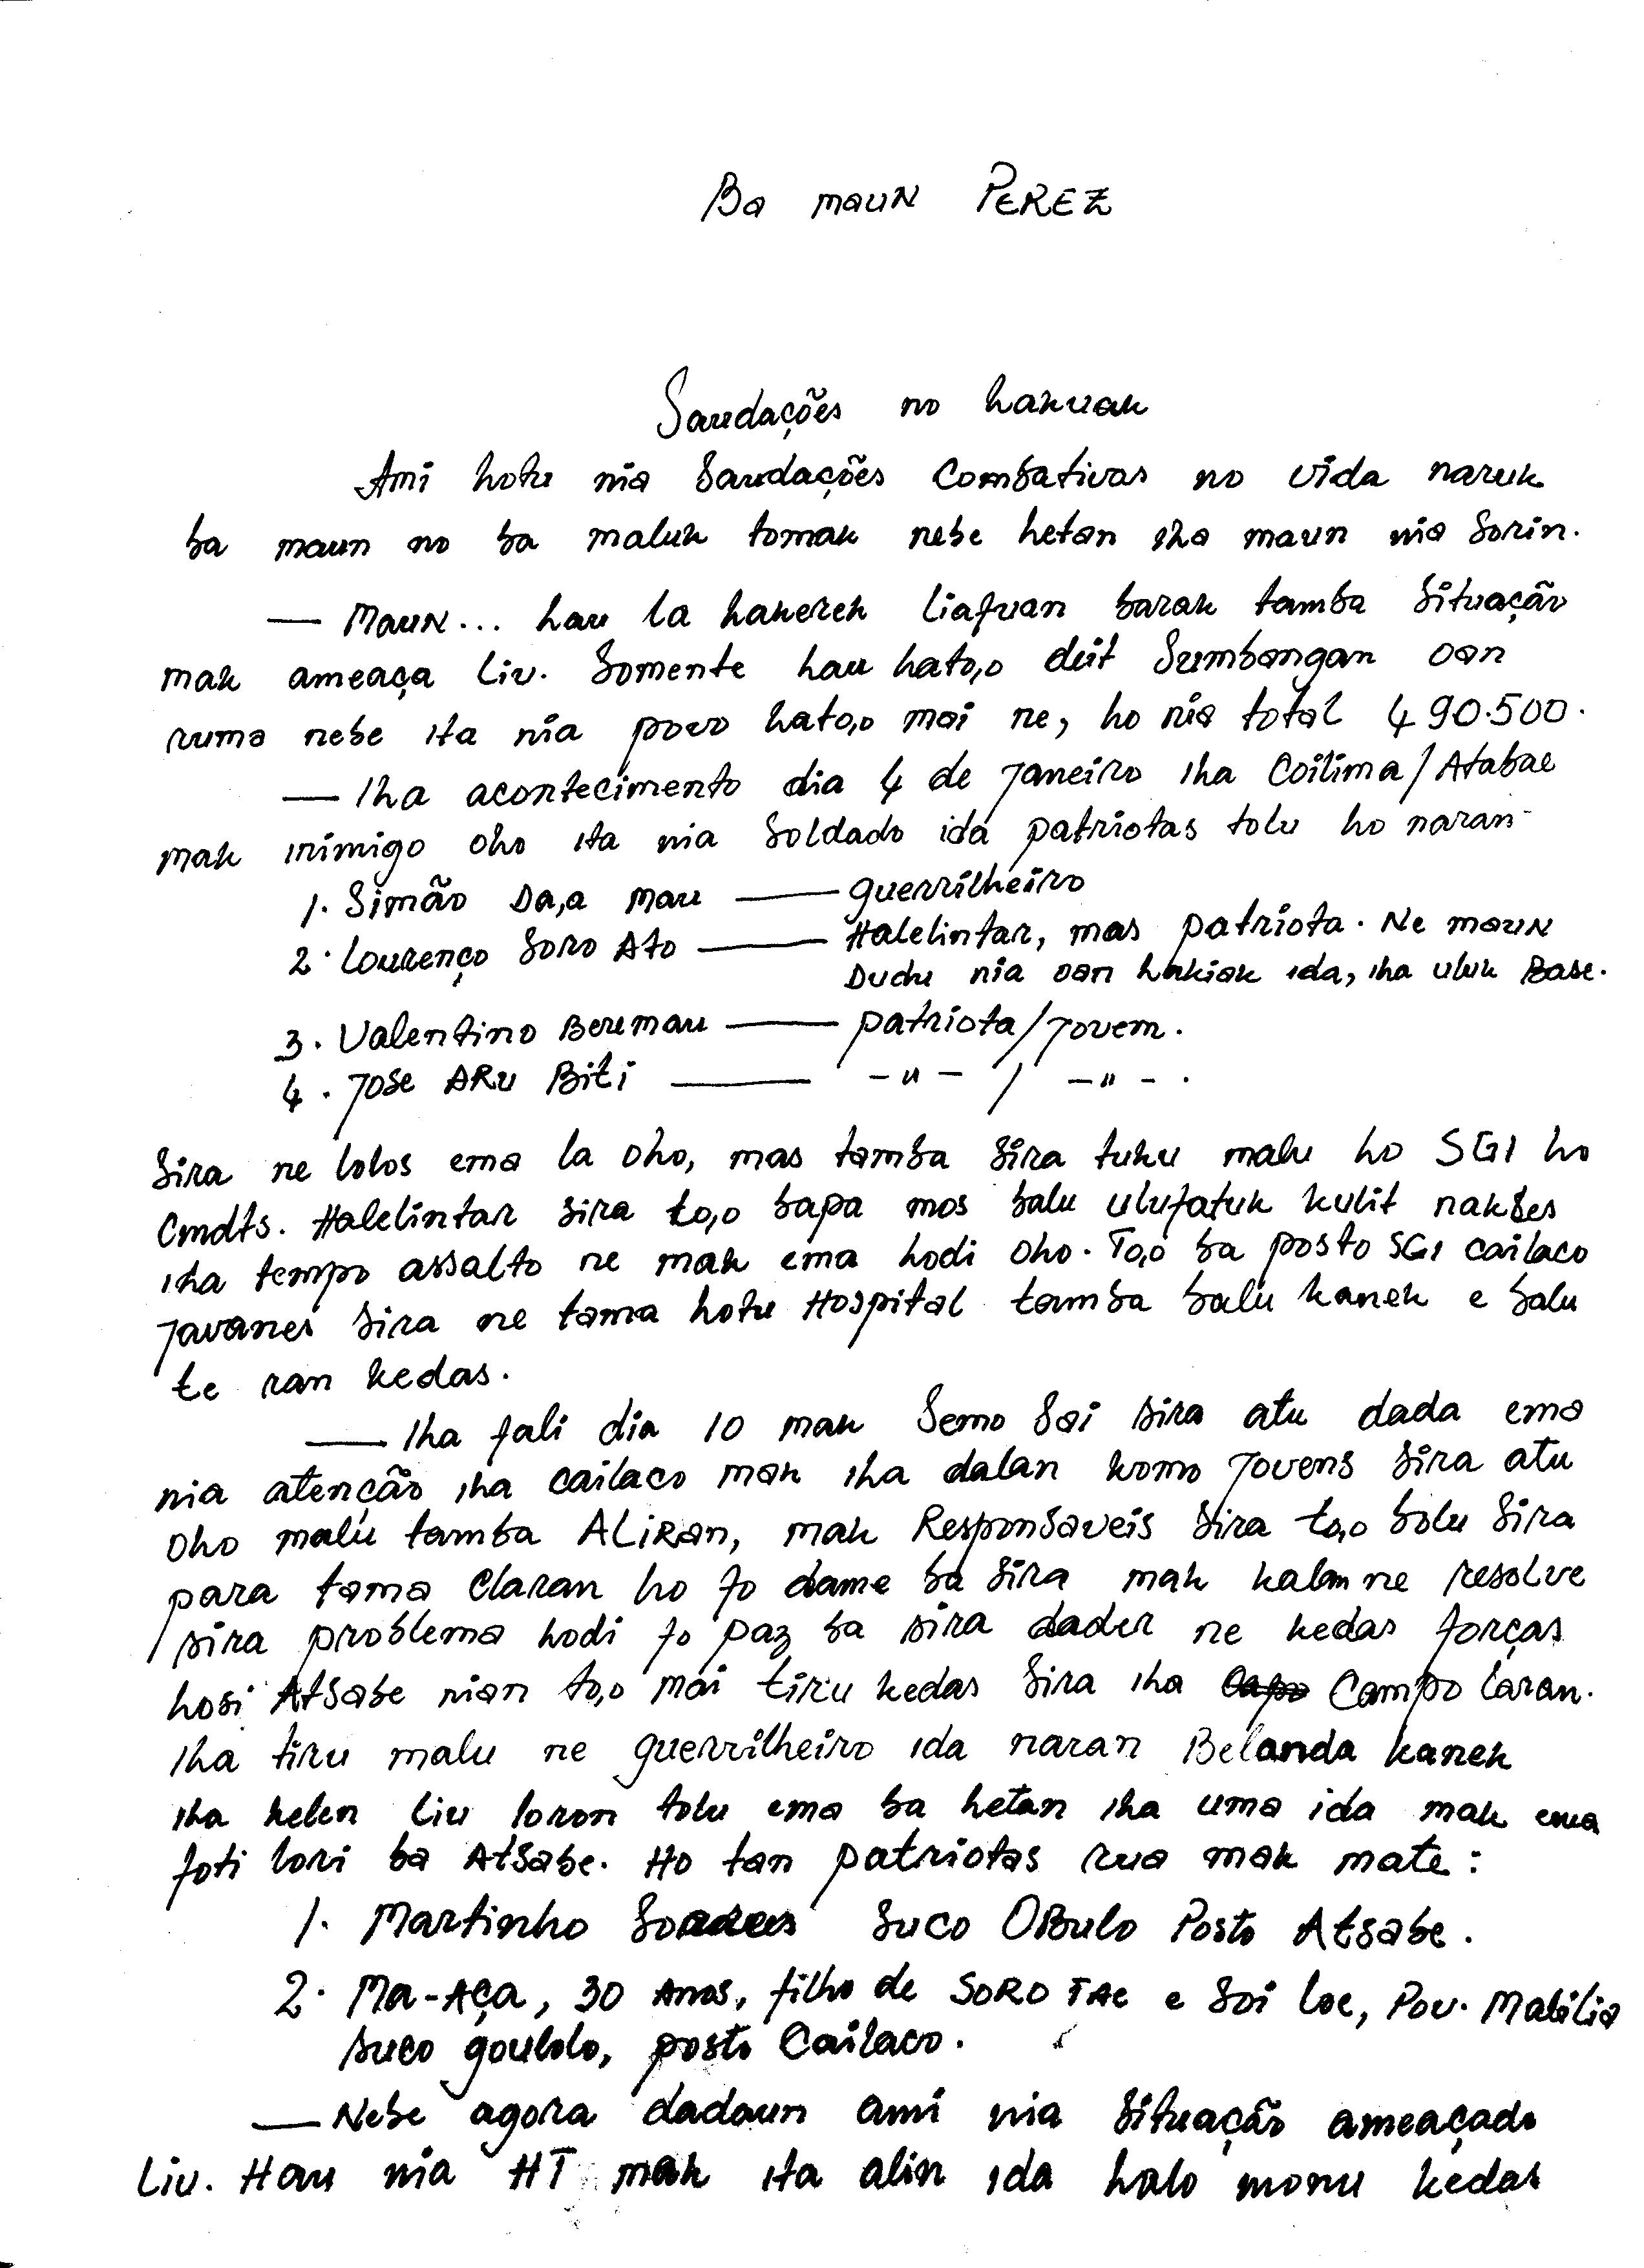 Ba maun PEREZ
Saudações no hakuak
Ami hotu nia Saudações Combativas no vida naruk
ba maun no ba maluk tomak nebe hetan iha maun nia sorin.
— Maun... hau la hakerek liafuan barak tamba situação
mak ameaça liv. Somente hau hato,o deit Sumbangan oan
ruma nebe ita nia povo hato,o mai ne, ho nia total 490.500.
— Iha acontecimento dia 4 de Janeiro iha Coilima/Atabae
mak inimigo oho ita nia Soldado ida patriotas tolu ho naran-
1. Simão Da,a Mau — guerrilheiro
2. Lourenço Soro Ato — Halelintar, mas patriota. Ne maun
Dudu nia oan hakiak ida, iha uluk Base.
3. Valentino Beremau — patriota/Jovem.
4. Jose ARu Biti — -"- / -"-.
Sira ne lolos ema la oho, mas tamba sira tuku malu ho SGI ho
Cmdts. Halelintar sira to,o bapa mos balu ulufatuk kulit nakbes
iha tempo assalto ne mak ema hodi oho. To,o ba posto SGI cailaco
Javanes sira ne tama hotu Hospital tamba balu kanek e balu
te ran kedas.
— Iha fali dia 10 mak Semo Soi sira atu dada ema
nia atenção iha cailaco mak iha dalan komo Jovens sira atu
oho malu tamba ALiRan, mak Responsaveis sira to,o bolu sira
para tama Claran ho fo dame ba sira mak kalan ne resolve
sira problema hodi fo paz ba sira dader ne kedas forças
hosi Atsabe nian to,o mai tiru kedas sira iha Campo laran.
Iha tiru malu ne guerrilheiro ida naran Belanda kanek
iha kelen liu loron tolu ema ba hetan iha uma ida mak ema
foti lori ba Atsabe. Ho tan patriotas rua mak mate:
1. Martinho Suco OBulo Posto Atsabe.
2. Ma-Aça, 30 Anos, filho de SORO TAE e Soi Loe, Pov. Mabilia
suco goulolo, posto Cailaco.
— Nebe agora dadaun ami nia Situação ameaçado
Liv. Hau nia HT mak ita alin ida halo monu kedas